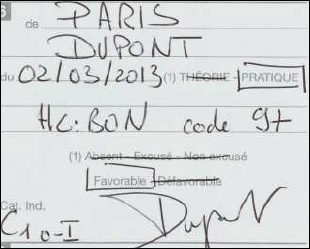 de PARIS
DUPONT
du 02/03/2013 (1) THÉORIE - PRATIQUE
HC: BON code 97
(1) Absent - Excusé - Non excusé
Favorable - Défavorable
Cat. Ind.
C10-I Dupont